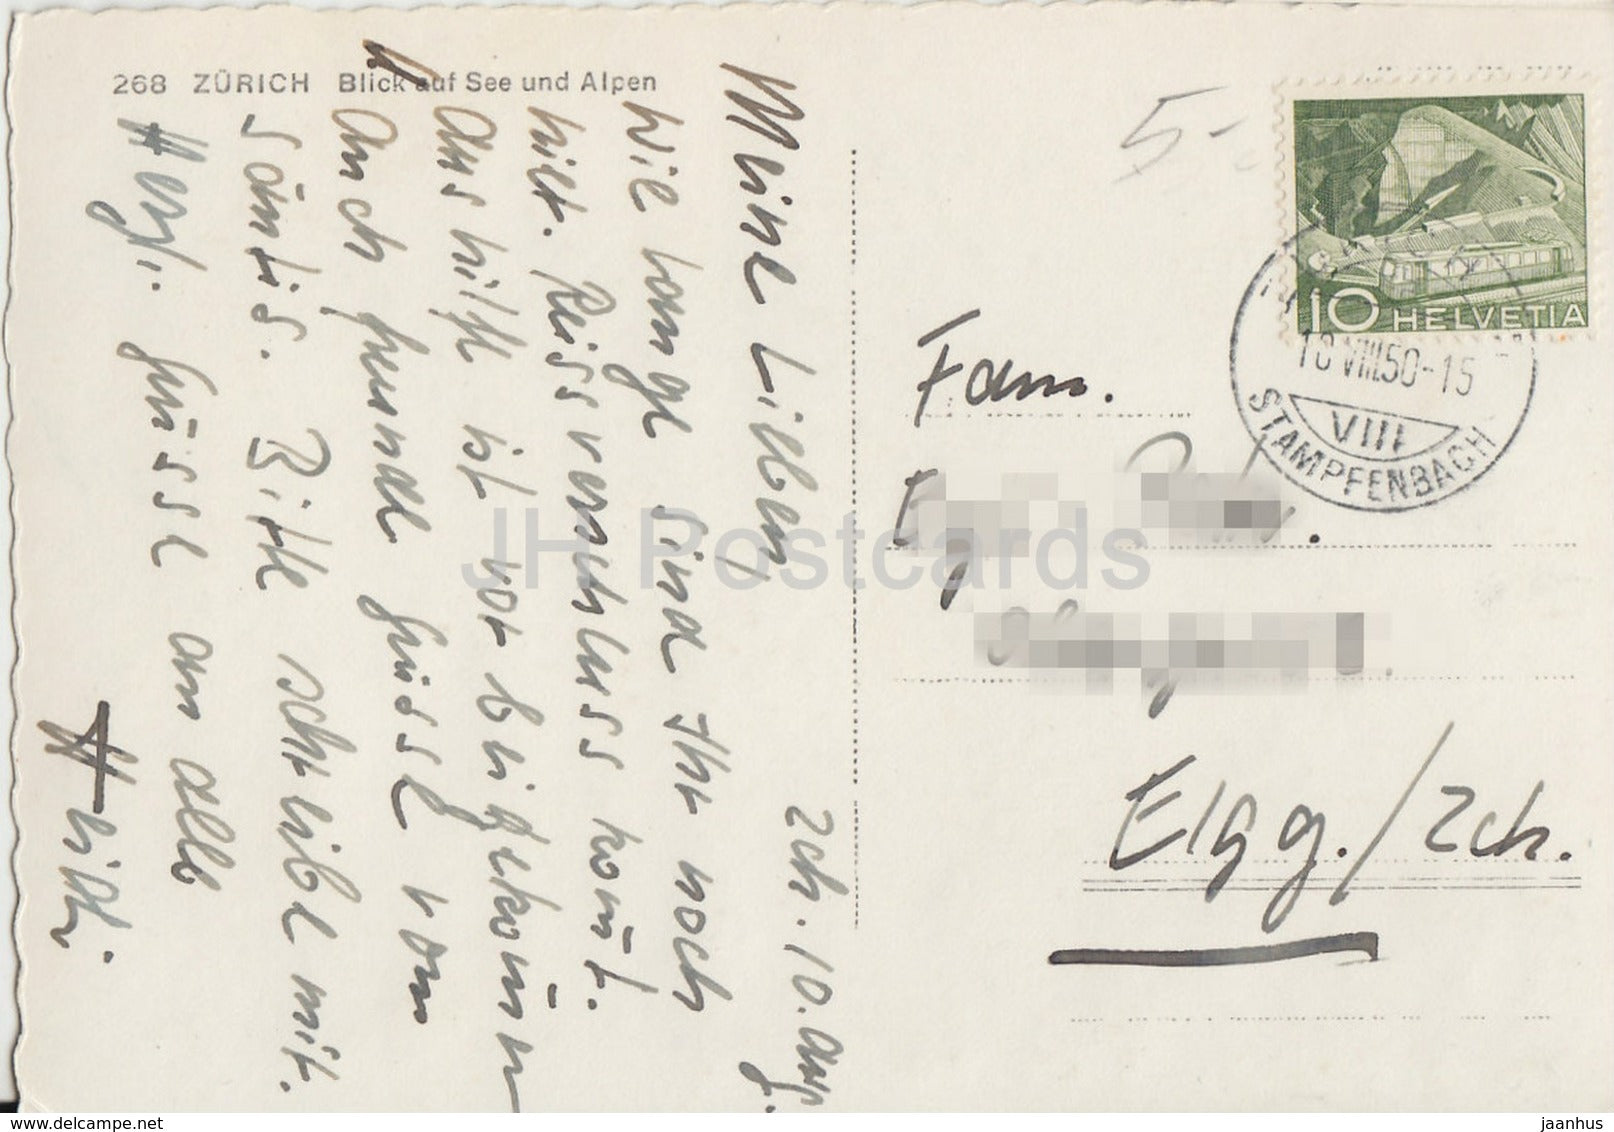 268 ZÜRICH Blick auf See und Alpen
Zch. 10. Aug.
Meine Lieben,
Wie lange sind Ihr noch
hier. Reissverschluss komt.
Aushilfe ist vorbeigekomen
Auch Hunde Grüsse vom
Säntis. Bitte schreibe mit.
Herzl. Grüsse an alle
Heidi.
5-
HELVETIA 10
10 VIII.50-15
VIII
STAMPFENBACH
Fam.
Elgg./Zch.
JH Postcards
www.delcampe.net
jaanhus